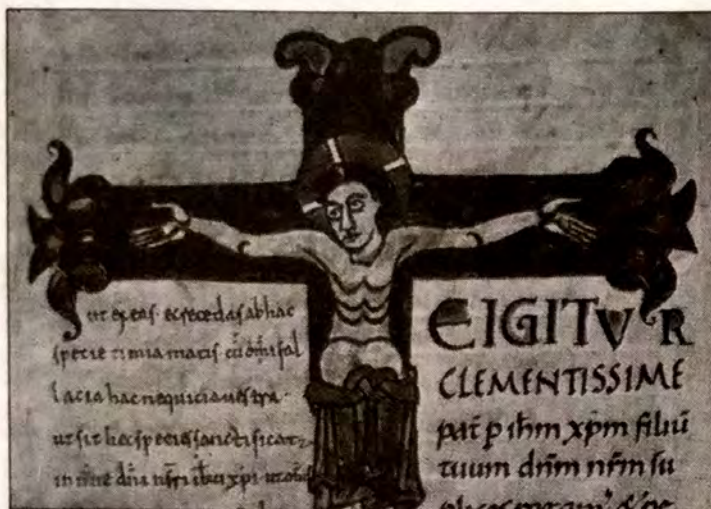 ut exeas & recedas ab hac
specie timiamatis cū om̄i fal
lacia hac nequicia uestra
ut sit hec species sanctificata
in nīne dn̄i nr̄i ih̄u xp̄i ut om̄
EIGITVR
CLEMENTISSIME
pat̄ p ih̄m xp̄m filiū
tuum dn̄m nr̄m su